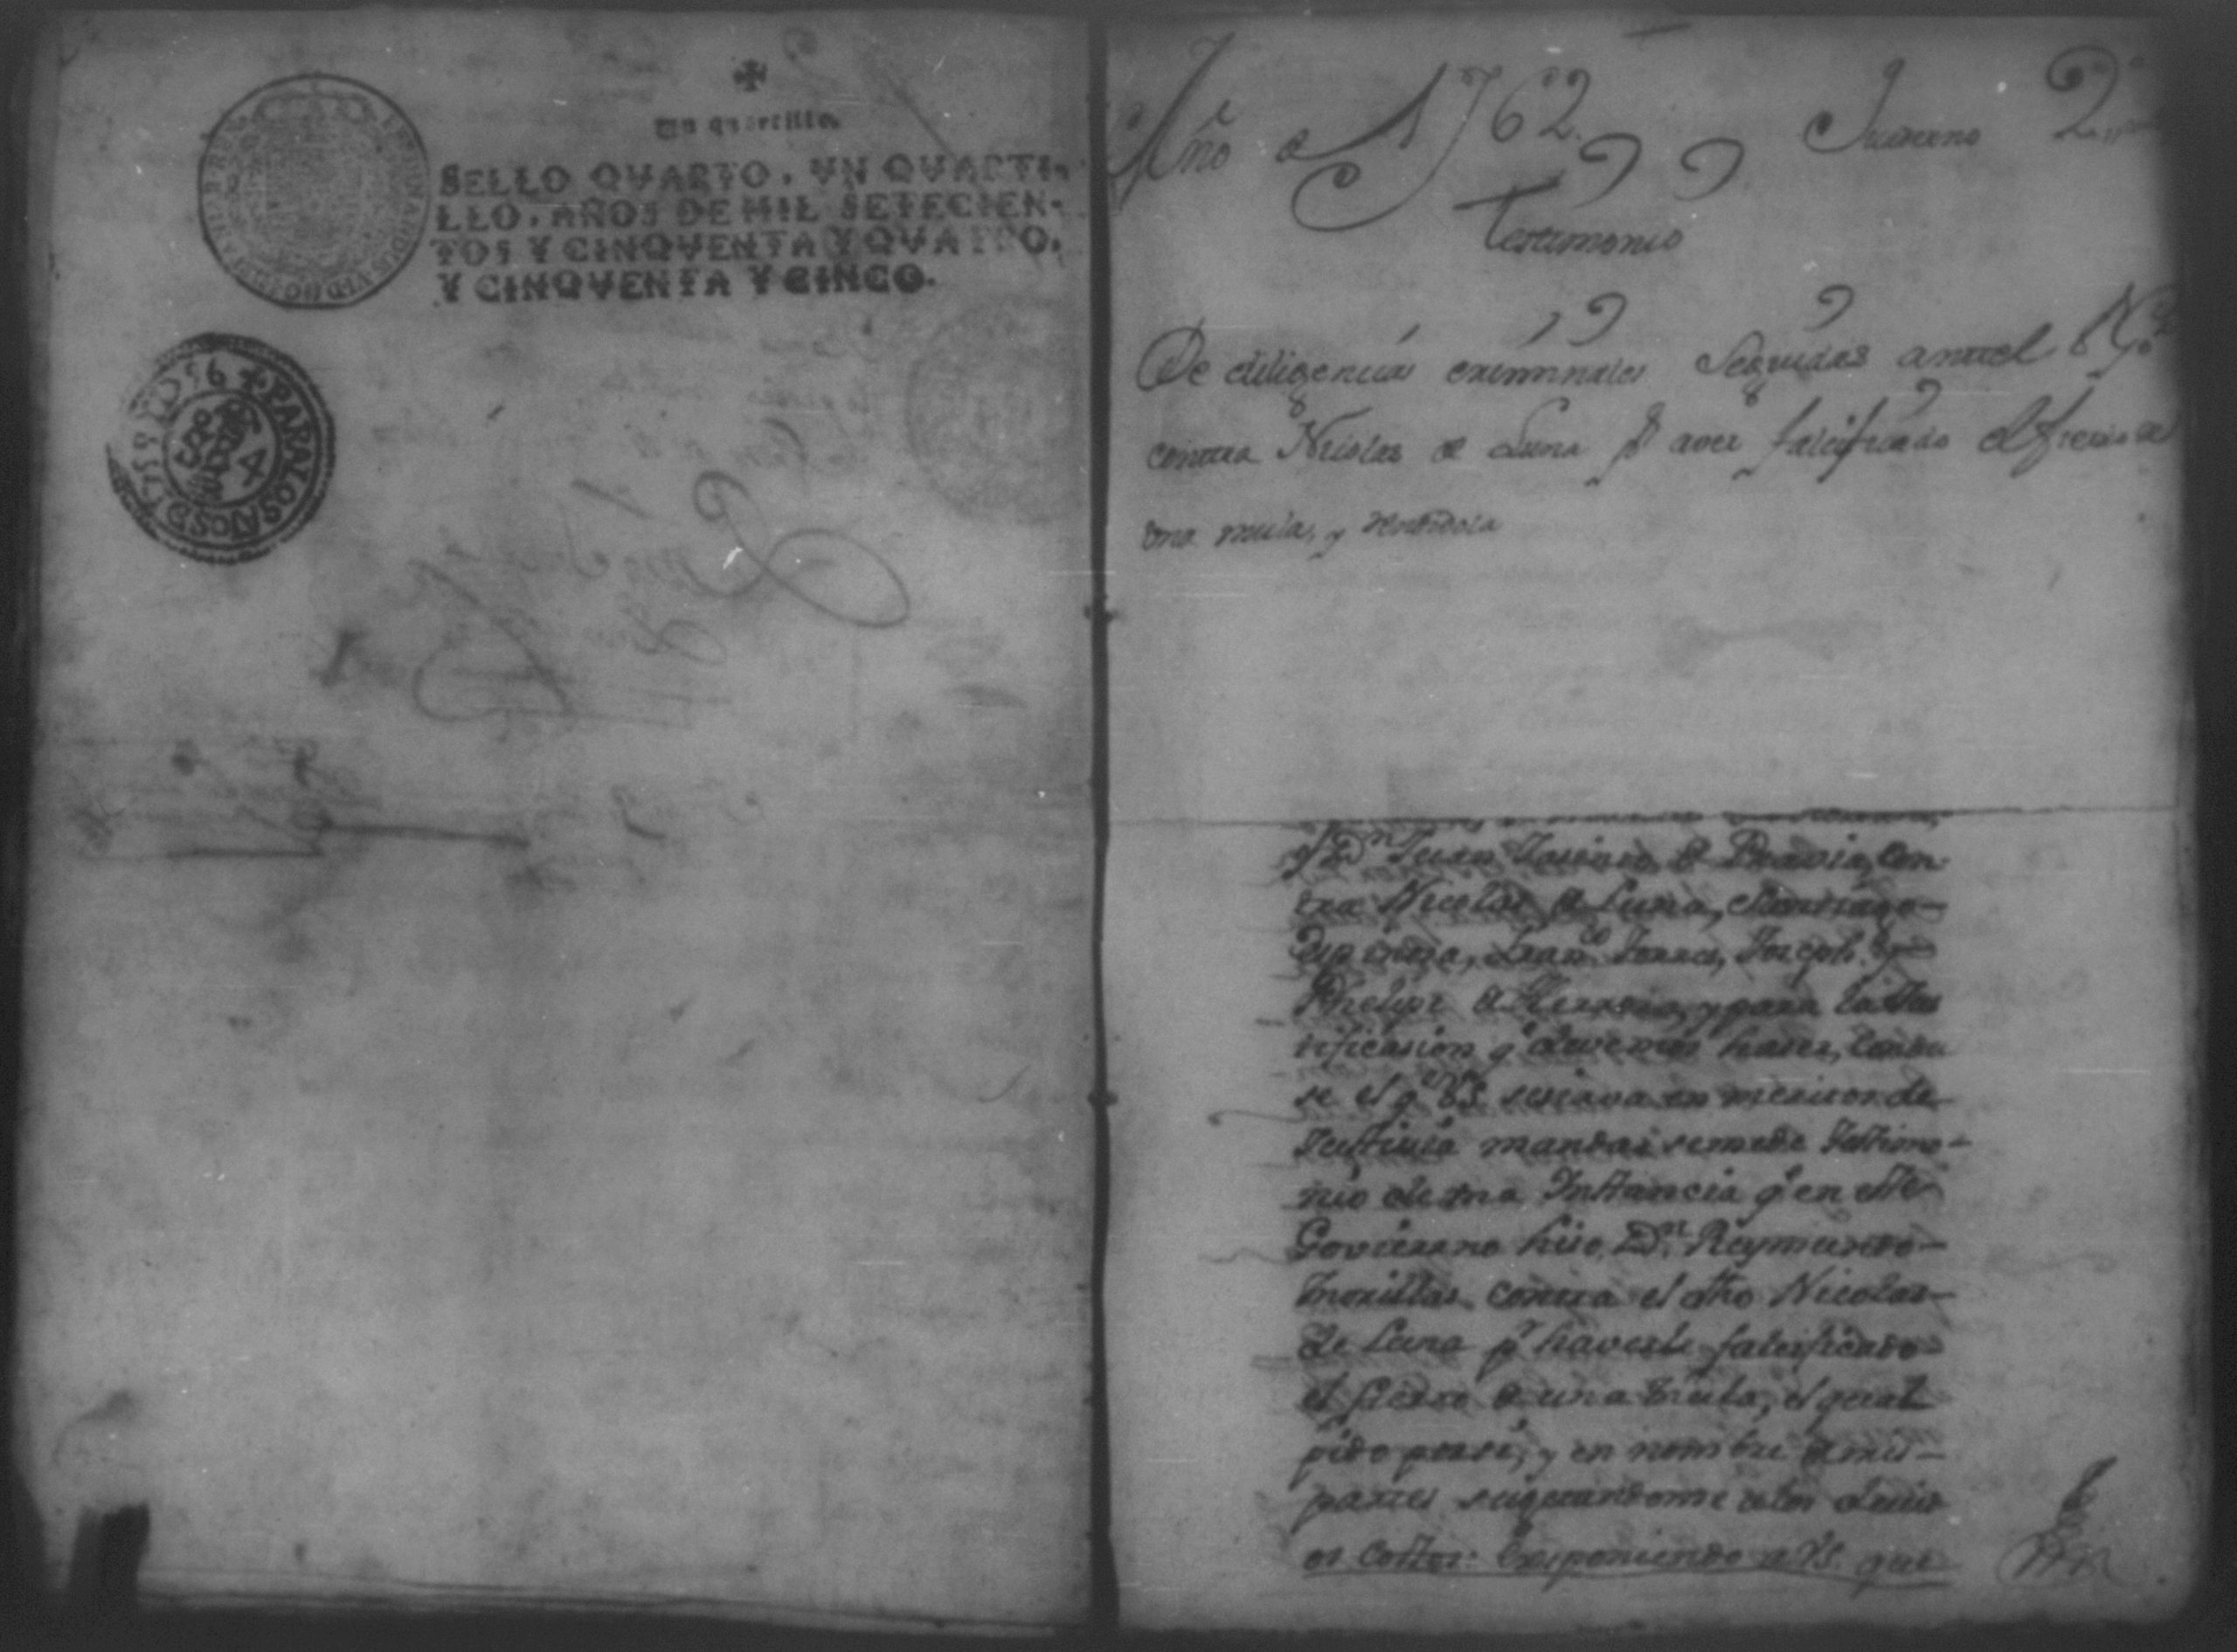 Un quartillo.
SELLO QVARTO, VN QVARTI-
LLO, AÑOS DE MIL SETECIEN-
TOS Y CINQVENTA Y QVATRO,
Y CINQVENTA Y CINCO.
PARA LOS AÑOS D 1758
Año de 1762. Quaderno 2º
Testimonio
De diligencias criminales seguidas ante el
contra Nicolas de Luna pr aver falcificado el fierro de
una mula, y vendidola
y Dn Juan de con
tra Nicolas de Luna, Santiago
Espinosa, Franco Torres, Joseph y
Phelipe de Herrera, y para la Jus
tificasion q devemos haser, condu
se el q VS. se sirva en meritos de
Justicia mandar se me de Testimo-
nio de una Instancia q en este
Govierno hiso Dn Reymundo
Morillas contra el dho Nicolas
de Luna pr haverle falcificado
el fierro de una Mula, el qual
pido para sí, y en nombre de mis
partes
os costos: Exsponiendo a VS. que